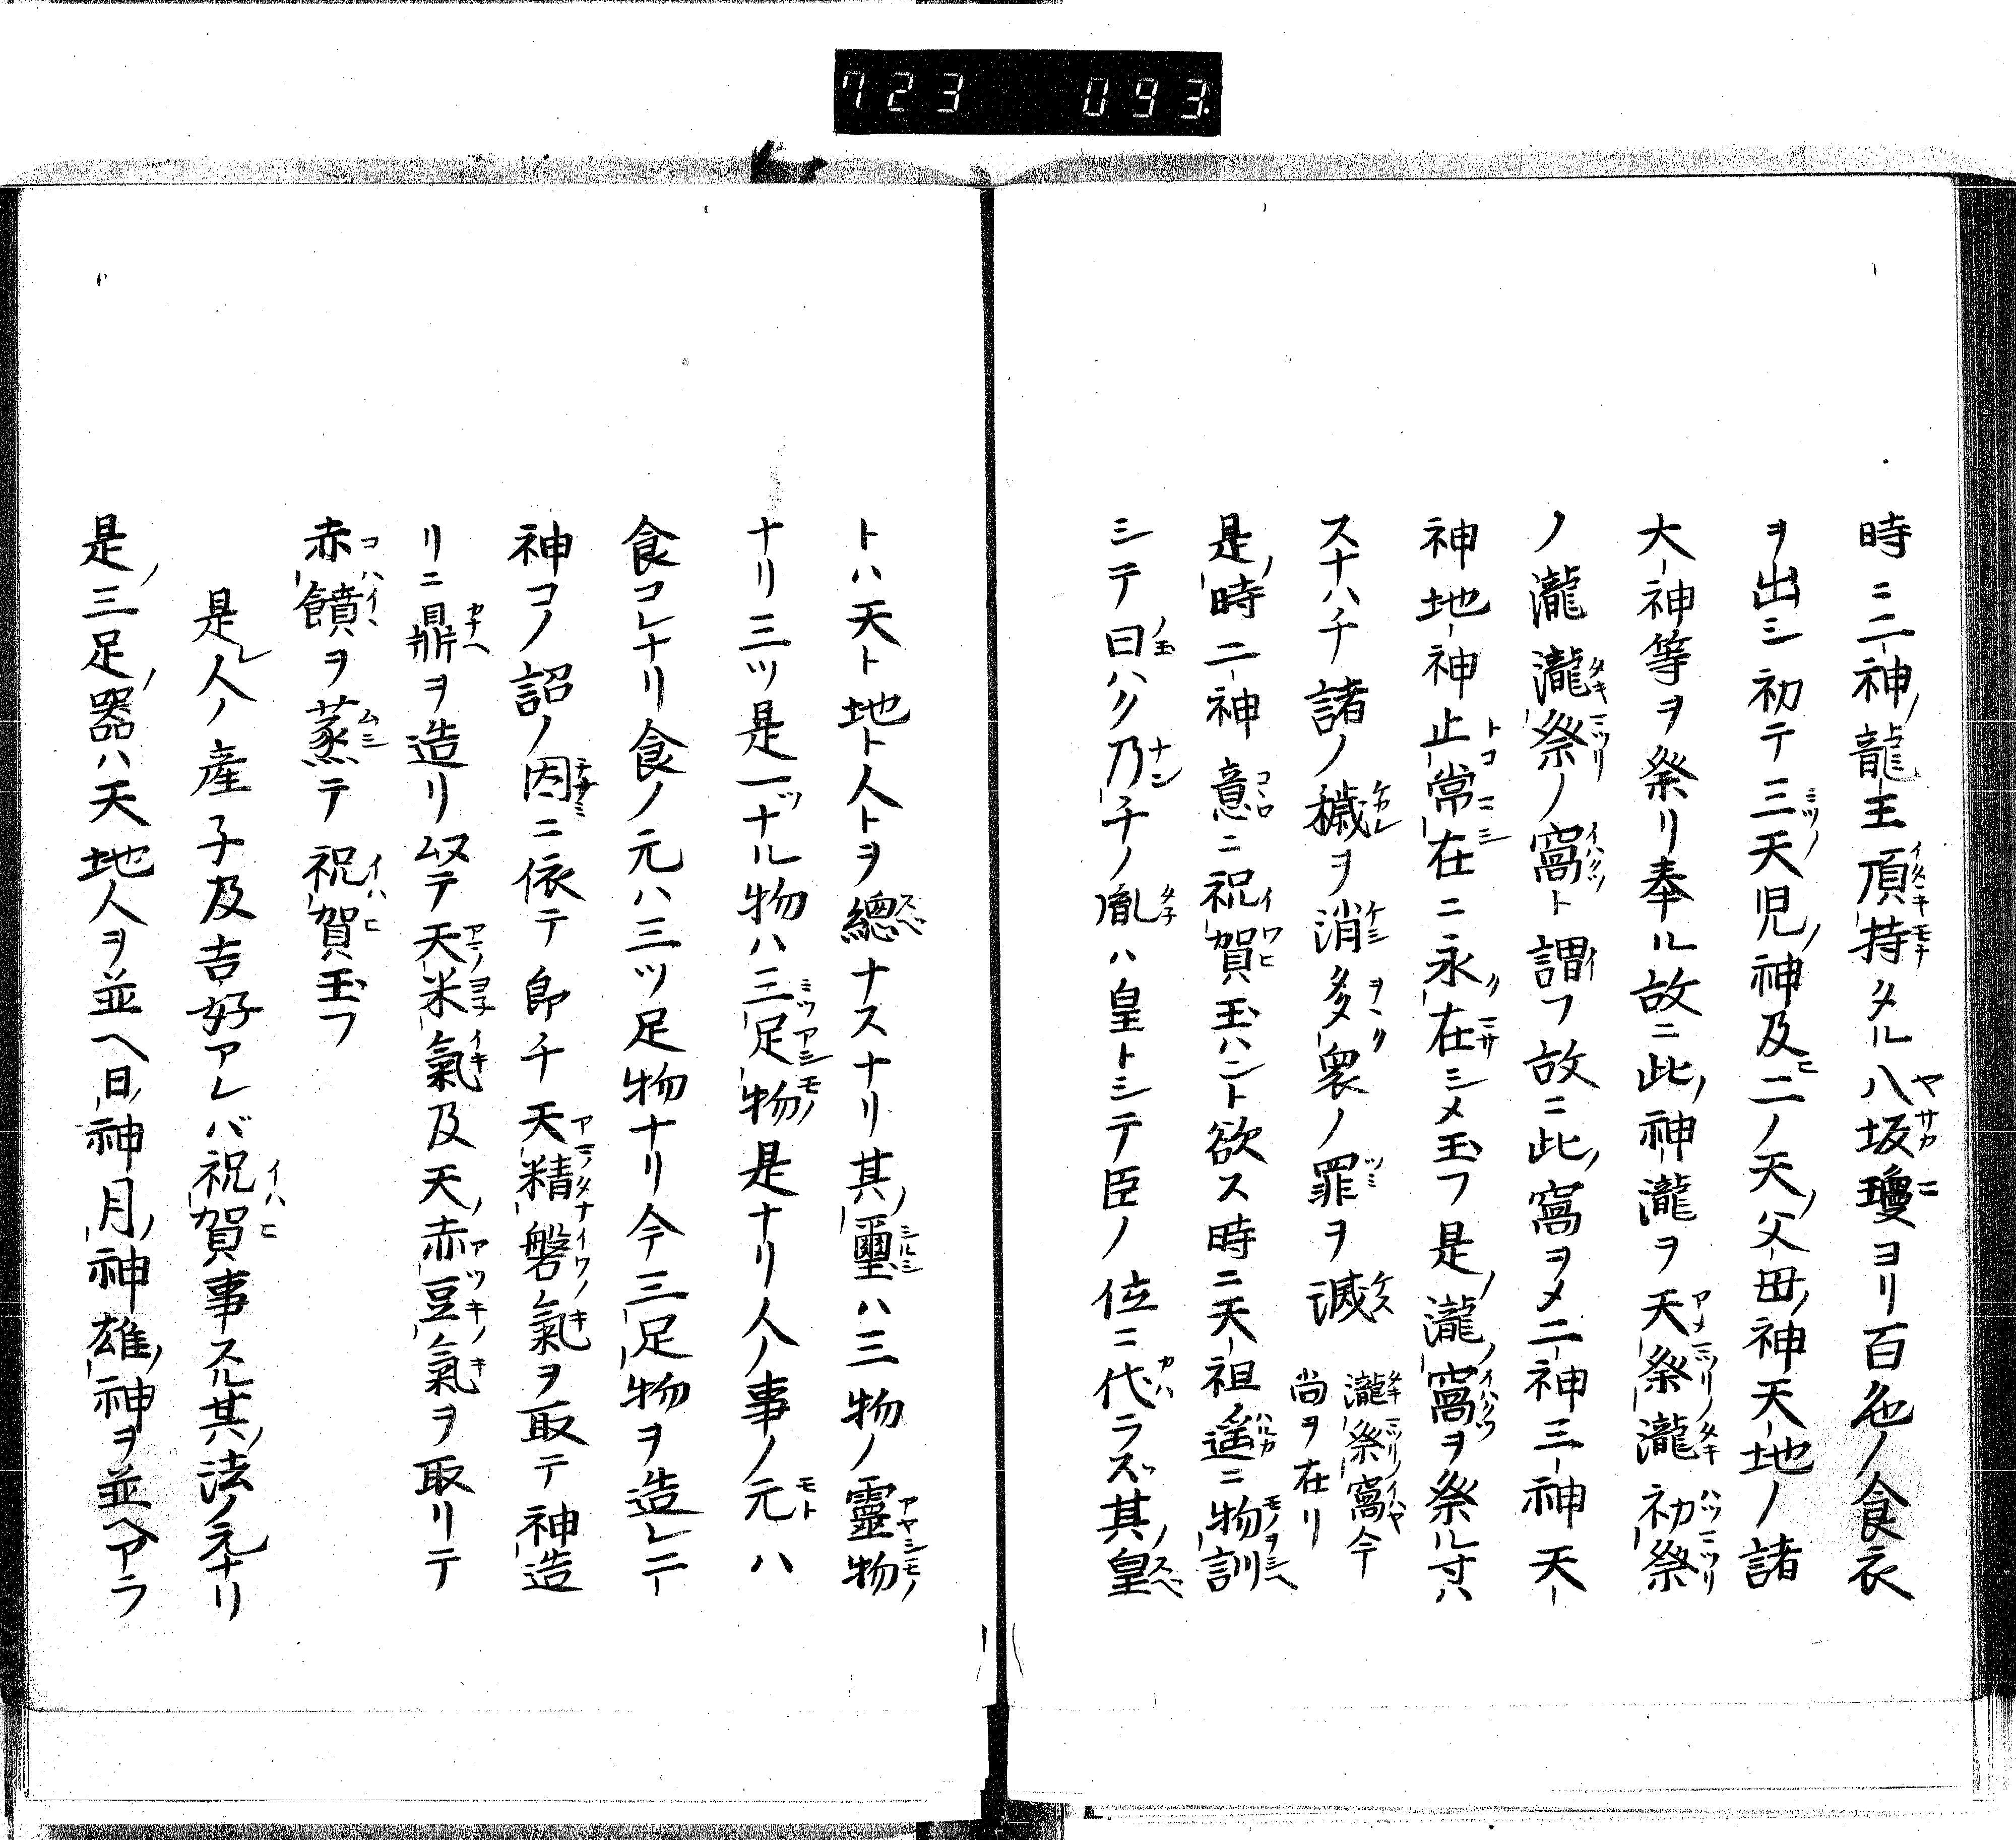 723 093
時ニ二神龍王頂持タル八坂瓊ヨリ百色ノ食衣
ヲ出シ初テ三天児神及二ノ天父母神天地ノ諸
大神等ヲ祭リ奉ル故ニ此神瀧ヲ天祭瀧初祭
ノ瀧瀧祭ノ窩ト謂フ故ニ此窩ヲメ二神三神天
神地神止常在ニ永在シメ玉フ是瀧窩ヲ祭ル寸ハ
スナハチ諸ノ穢ヲ消多衆ノ罪ヲ滅
瀧祭窩今
尚ヲ在リ
是時二神意ニ祝賀玉ハント欲ス時ニ天祖遥ニ物訓
シテ曰ハク乃チノ胤ハ皇トシテ臣ノ位ニ代ラズ其皇
トハ天ト地ト人トヲ總ナスナリ其璽ハ三物ノ靈物
ナリ三ツ是一ナル物ハ三足物是ナリ人ノ事ノ元ハ
食コレナリ食ノ元ハ三ツ足物ナリ今三足物ヲ造レ二
神コノ詔ノ因ニ依テ即チ天精磐氣ヲ取テ神造
リニ鼎ヲ造リ以テ天米氣及天赤豆氣ヲ取リテ
赤饙ヲ蒸テ祝賀玉フ
是人ノ産子及吉好アレバ祝賀事スル其法ノ元ナリ
是三足器ハ天地人ヲ並ヘ日神月神雄神ヲ並ヘアラ